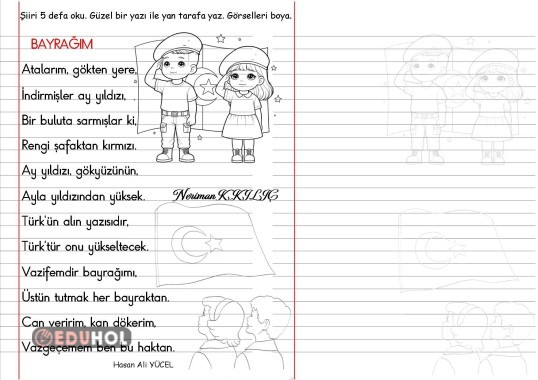 Şiiri 5 defa oku. Güzel bir yazı ile yan tarafa yaz. Görselleri boya.
BAYRAĞIM
Atalarım, gökten yere,
İndirmişler ay yıldızı,
Bir buluta sarmışlar ki,
Rengi şafaktan kırmızı.
Ay yıldızı, gökyüzünün,
Ayla yıldızından yüksek.
Neriman KKILIÇ
Türk'ün alın yazısıdır,
Türk'tür onu yükseltecek.
Vazifemdir bayrağımı,
Üstün tutmak her bayraktan.
Can veririm, kan dökerim,
EDUHOL
Vazgeçemem ben bu haktan.
Hasan Ali YÜCEL